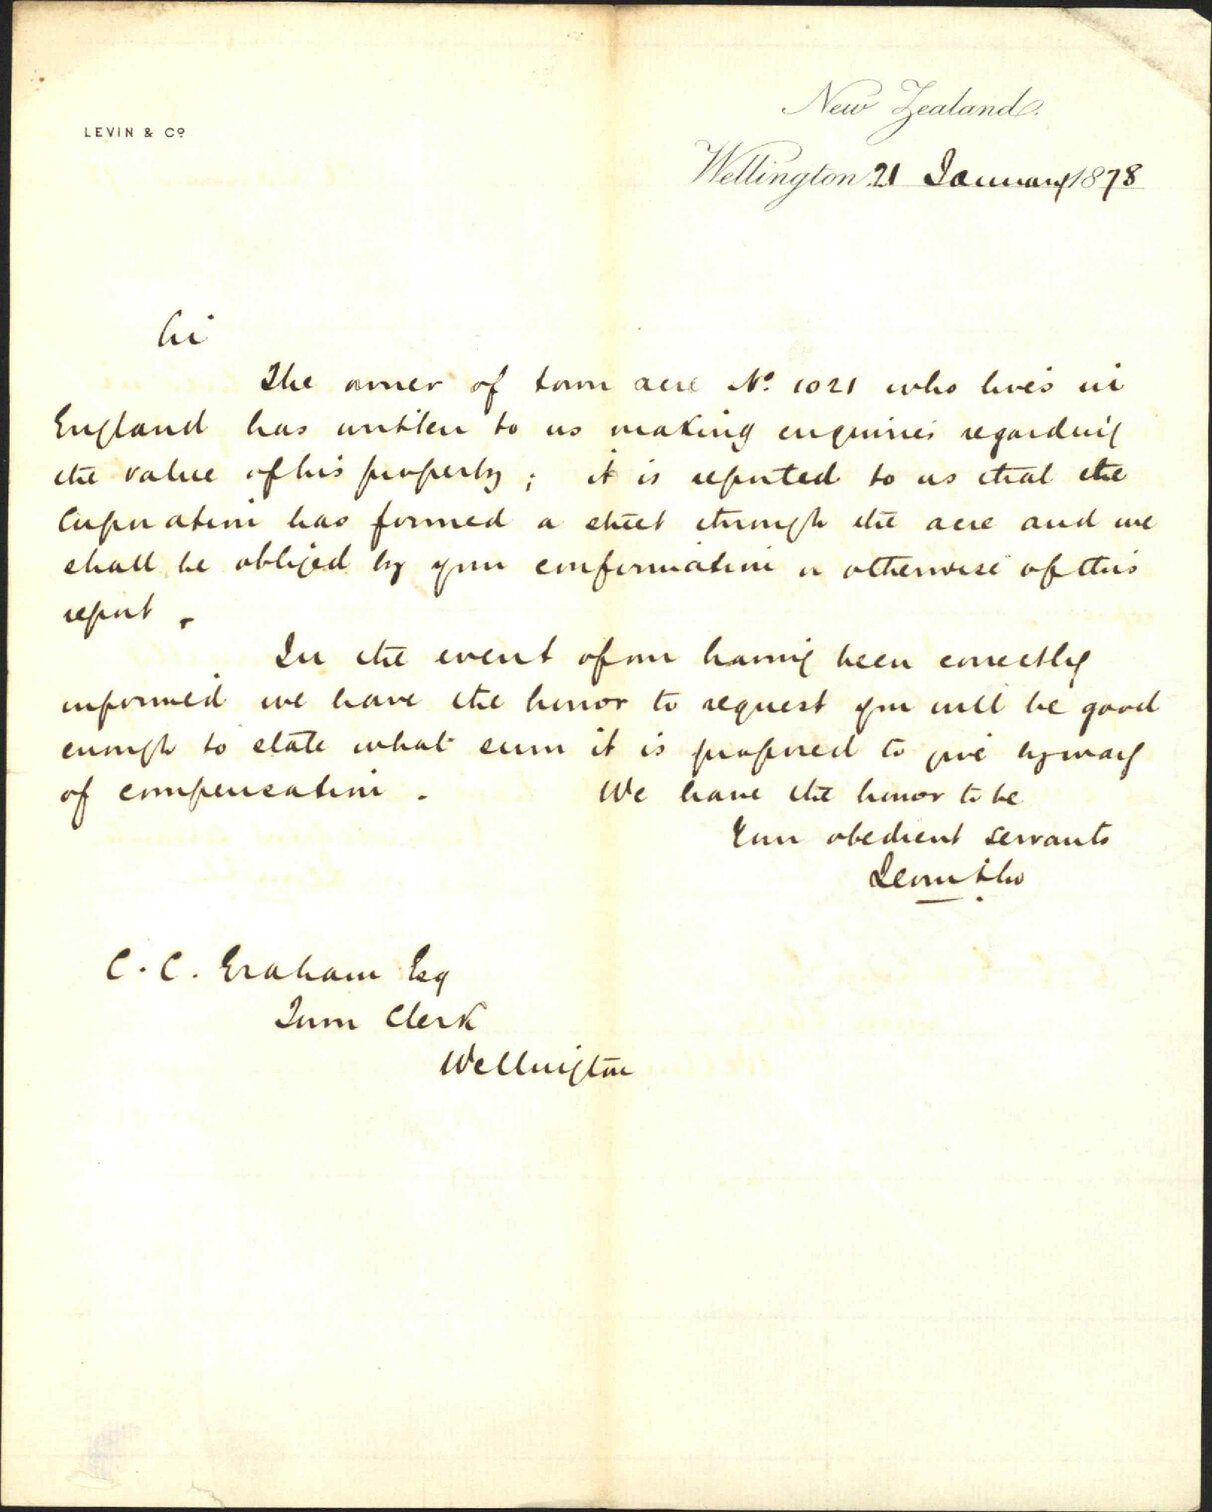 New Zealand.
LEVIN & Co
Wellington 21 January 1878
Sir
The owner of town acre No. 1021 who lives in
England has written to us making enquiries regarding
the value of his property; it is reported to us that the
Corporation has formed a street through the acre and we
shall be obliged by your confirmation or otherwise of this
report.
In the event of our having been correctly
informed we have the honor to request you will be good
enough to state what sum it is proposed to give by way
of compensation. We have the honor to be
Your obedient servants
Levin & Co
C. C. Graham Esq
Town Clerk
Wellington